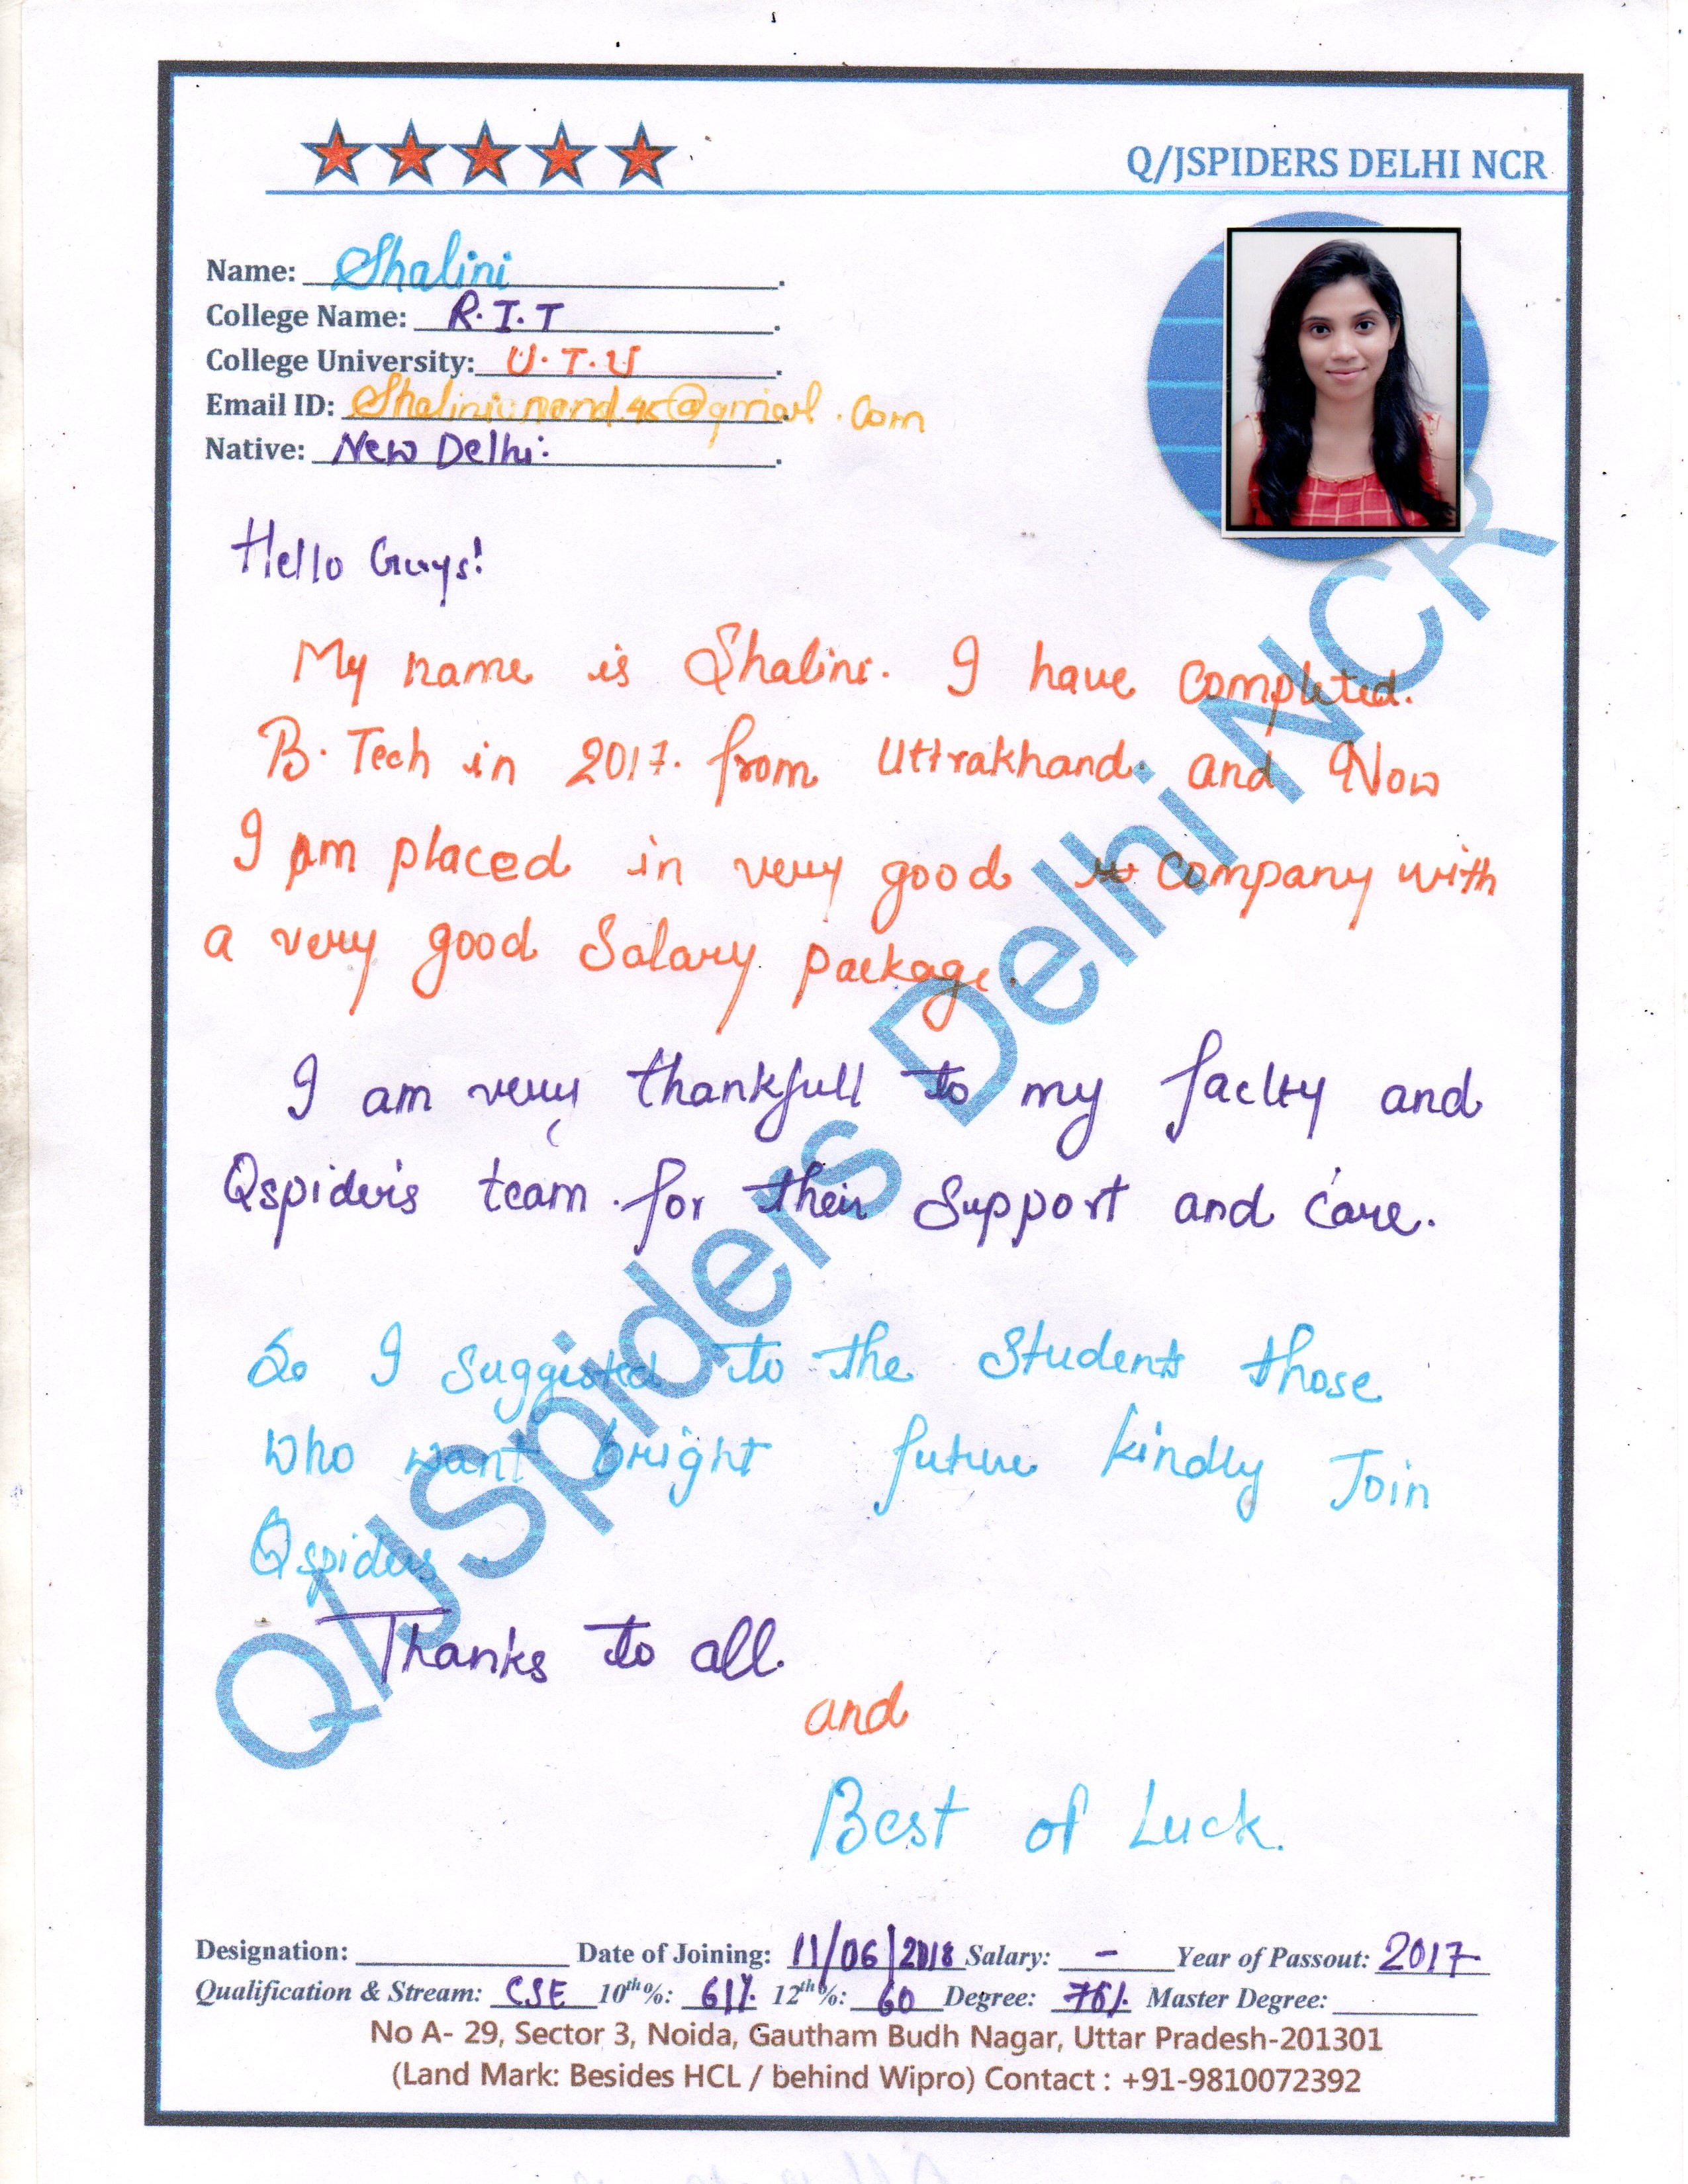 Q/JSPIDERS DELHI NCR
Name: Shalini
College Name: R.I.T
College University: U.T.U
Email ID: @gmail.com
Native: New Delhi.
Hello Guys!
My name is Shalini. I have completed.
B.Tech in 2017. from Uttrakhand. and Now
I am placed in very good company with
a very good Salary package.
I am very thankfull to my faclty and
Qspiders team. for their Support and care.
So I suggested to the Students those
who want bright future kindly Join
Qspiders.
Thanks to all.
and
Best of Luck.
Q/JSpiders Delhi NCR
Designation: Date of Joining: 11/06/2018 Salary: - Year of Passout: 2017
Qualification & Stream: CSE 10th%: 61% 12th%: 60 Degree: 76% Master Degree:
No A- 29, Sector 3, Noida, Gautham Budh Nagar, Uttar Pradesh-201301
(Land Mark: Besides HCL / behind Wipro) Contact : +91-9810072392